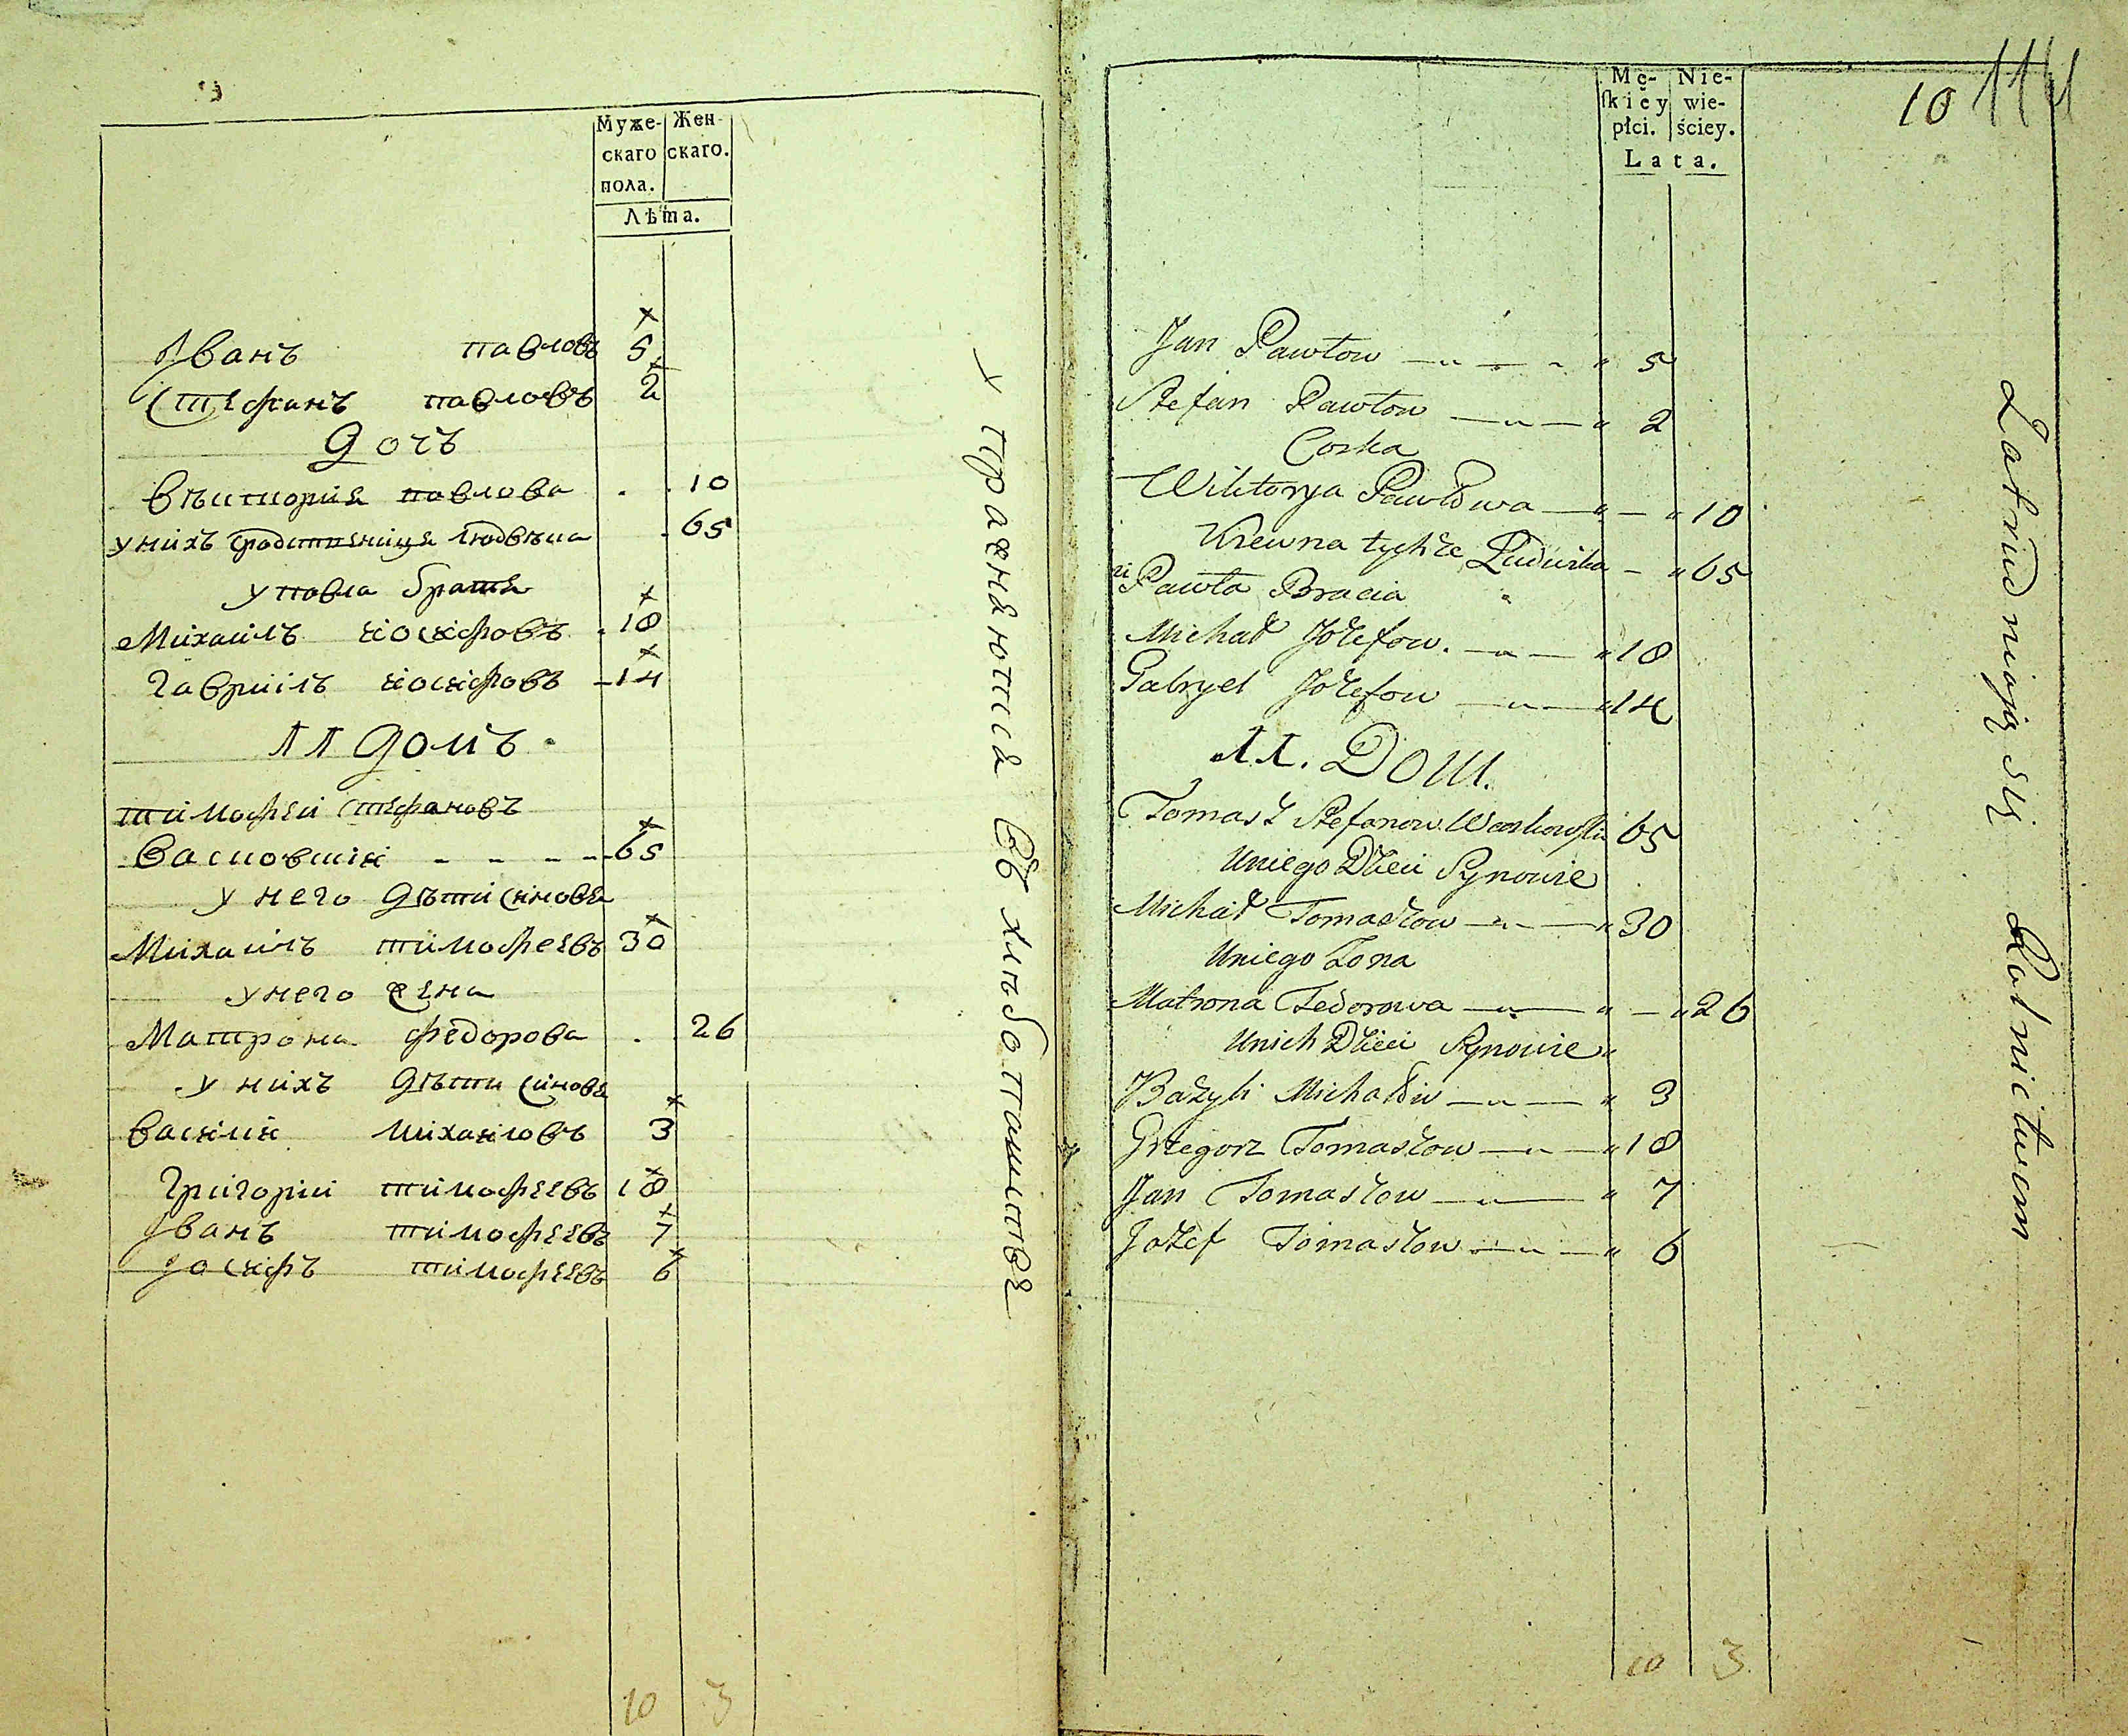 Муже- Жен-
скаго скаго.
пола.
Лѣта.
Иванъ павловъ 5
Стефанъ павловъ 2
Дочь
Виктория павлова 10
у нихъ сродственица Людвика 65
у павла братя
Михаилъ иосифовъ 18
Гавриилъ иосифовъ 14
11 Домъ
тимофей стефановъ
Васковский 65
у него Дѣти синовя
Михаилъ тимофеевъ 30
у него жена
Матрона федорова 26
у нихъ Дѣти синовя
василий михаиловъ 3
Григорий тимофеевъ 18
Иванъ тимофеевъ 7
Иосифъ тимофеевъ 6
10 3
упражняются въ хлѣбопашестве
10
Mę- Nie-
ſkiéy wie-
płci. ściey.
Lata.
Jan Pawłow 5
Stefan Pawłow 2
Corka
Wiktorya Pawłowa 10
Krewna tychże Ludwika 65
u Pawła Bracia
Michał Jozefow. 18
Gabryel Jozefow 14
11. Dom.
Tomasz Stefanow Waskowski 65
Uniego Dzieci Synowie
Michał Tomaszow 30
Uniego Zona
Matrona Fedorowa 26
Unich Dzieci Synowie
Bazyli Michałow 3
Grzegorz Tomaszow 18
Jan Tomaszow 7
Jozef Tomaszow 6
10 3
Zatrudniają się Rolnictwem